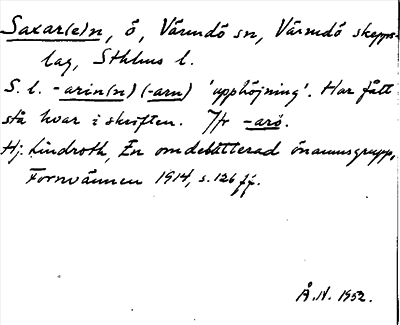 Saxar(e)n, ö, Värmdö sn, Värmdö skepps-
lag, Sthlms l.
S. l. -arin(n) (-arn) 'upphöjning'. Har fått
stå kvar i skriften. Jfr -arö.
Hj. Lindroth, En omdebatterad önamnsgrupp,
Fornvännen 1914, s. 126 ff.
Å. N. 1952.